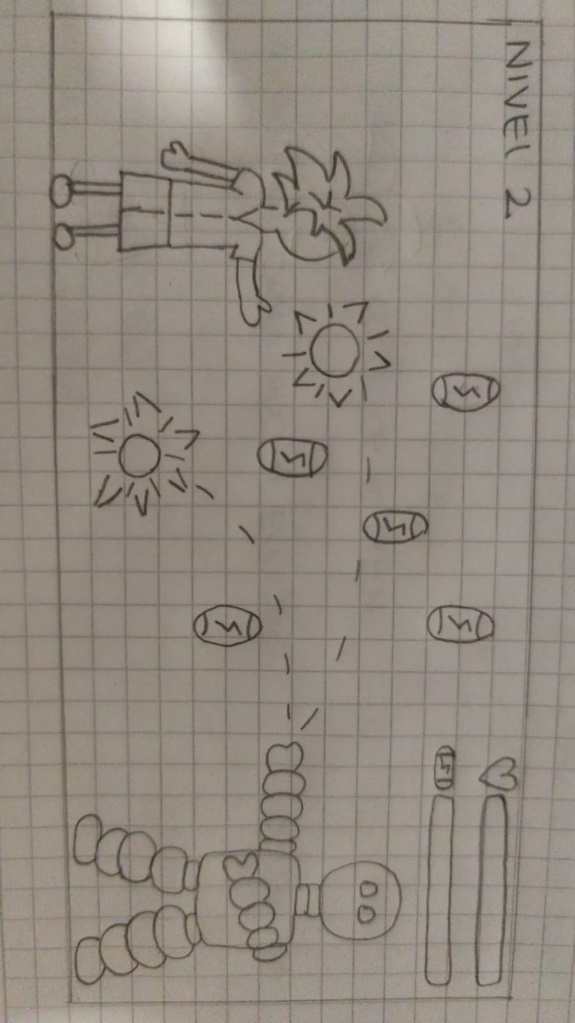 NIVEL 2